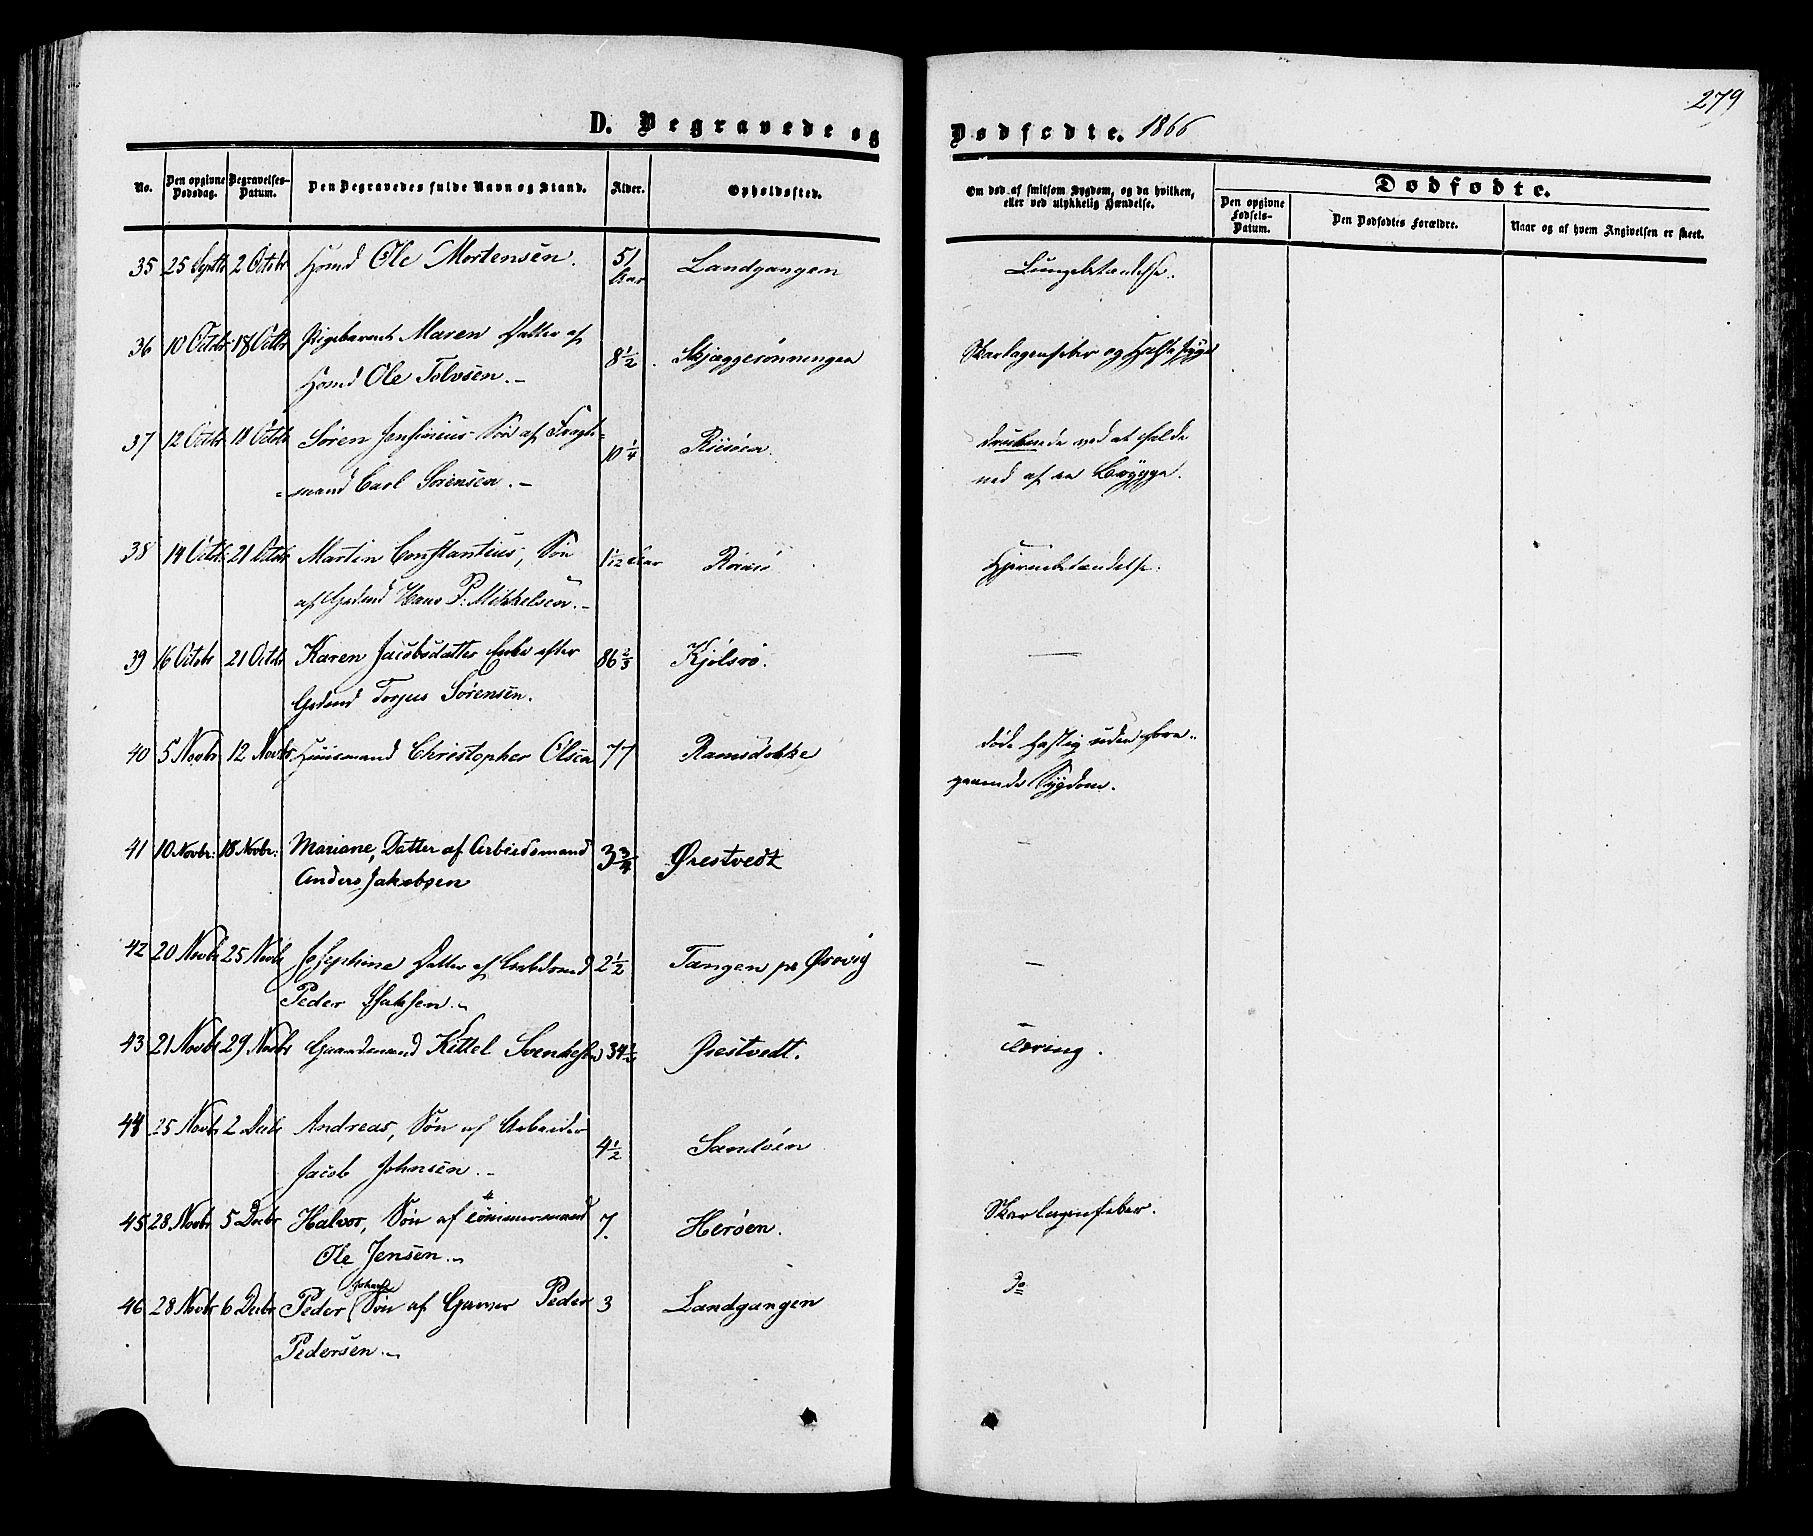 279
D. Begravede og Dødfødte. 1866
No. Den opgivne Dødsdag. Begravelses-Datum. Den Begravedes fulde Navn og Stand. Alder. Opholdssted. Om død af smitsom Sygdom, og da hvilken, eller ved ulykkelig Hændelse. Dødfødte.
Den opgivne Fødsels-Datum. Den Dødfødtes Forældre. Naar og af hvem Angivelsen er skeet.
35 25 Septb 2 Octobr Hsmd Ole Mortensen. 51 Aar Landgangen Lungebetændelse.
36 10 Octob 18 Octbr Pigebarnet Maren Datter af 8 1/2 Skjæggesønningen Skarlagensfeber og Halssyge
Hsmd Ole Tolvsen.-
37 12 Octbr 18 Octob Søren Jensinius Søn af Fragte- 10 1/4 Riisöen druknede ved at falde
=mand Carl Sörensen.- ned af en Brygge.
38 14 Octob 21 Octobr Martin Constantius, Søn 1 1/12 Aar Risö Hjernebetændelse.
af Gsmd Hans P. Mikkelsen.-
39 16 Octobr 21 Octob Karen Jacobsdatter Enke efter 86 2/3 Kjölsrø. —
Grdmd Torjus Sørensen.
40 5 Novbr 12 Novbr Huusmand Christopher Olsen 77 Ramsdokke døde hastig uden fore-
gaaende Sygdom.
41 10 Novbr: 18 Novbr: Mariane, Datter af Arbeidsmand 3 3/4 Ørestvedt -
Anders Jakobsen
42 20 Novbr 25 Novbr Josephine Datter af Arbdsmd 2 1/2 Tangen pr Ørvig —
Peder Isaksen.-
43 21 Novbr 29 Novbr Gaardmand Kittel Svenkesen 34 1/2 Ørestvedt. Tæring.
44 25 Novbr 2 Decbr Andreas, Søn af Arbeider 4 1/2 Sandöen
Jacob Johnsen.-
45 28 Novbr 5 Decbr Halvor, Søn af Tömmermand 7. Heröen. Skarlagensfeber.
Ole Jensen.-
46 28 Novbr 6 Decbr Peder Johan Søn af Garver Peder 3 Landgangen Do
Pedersen.-